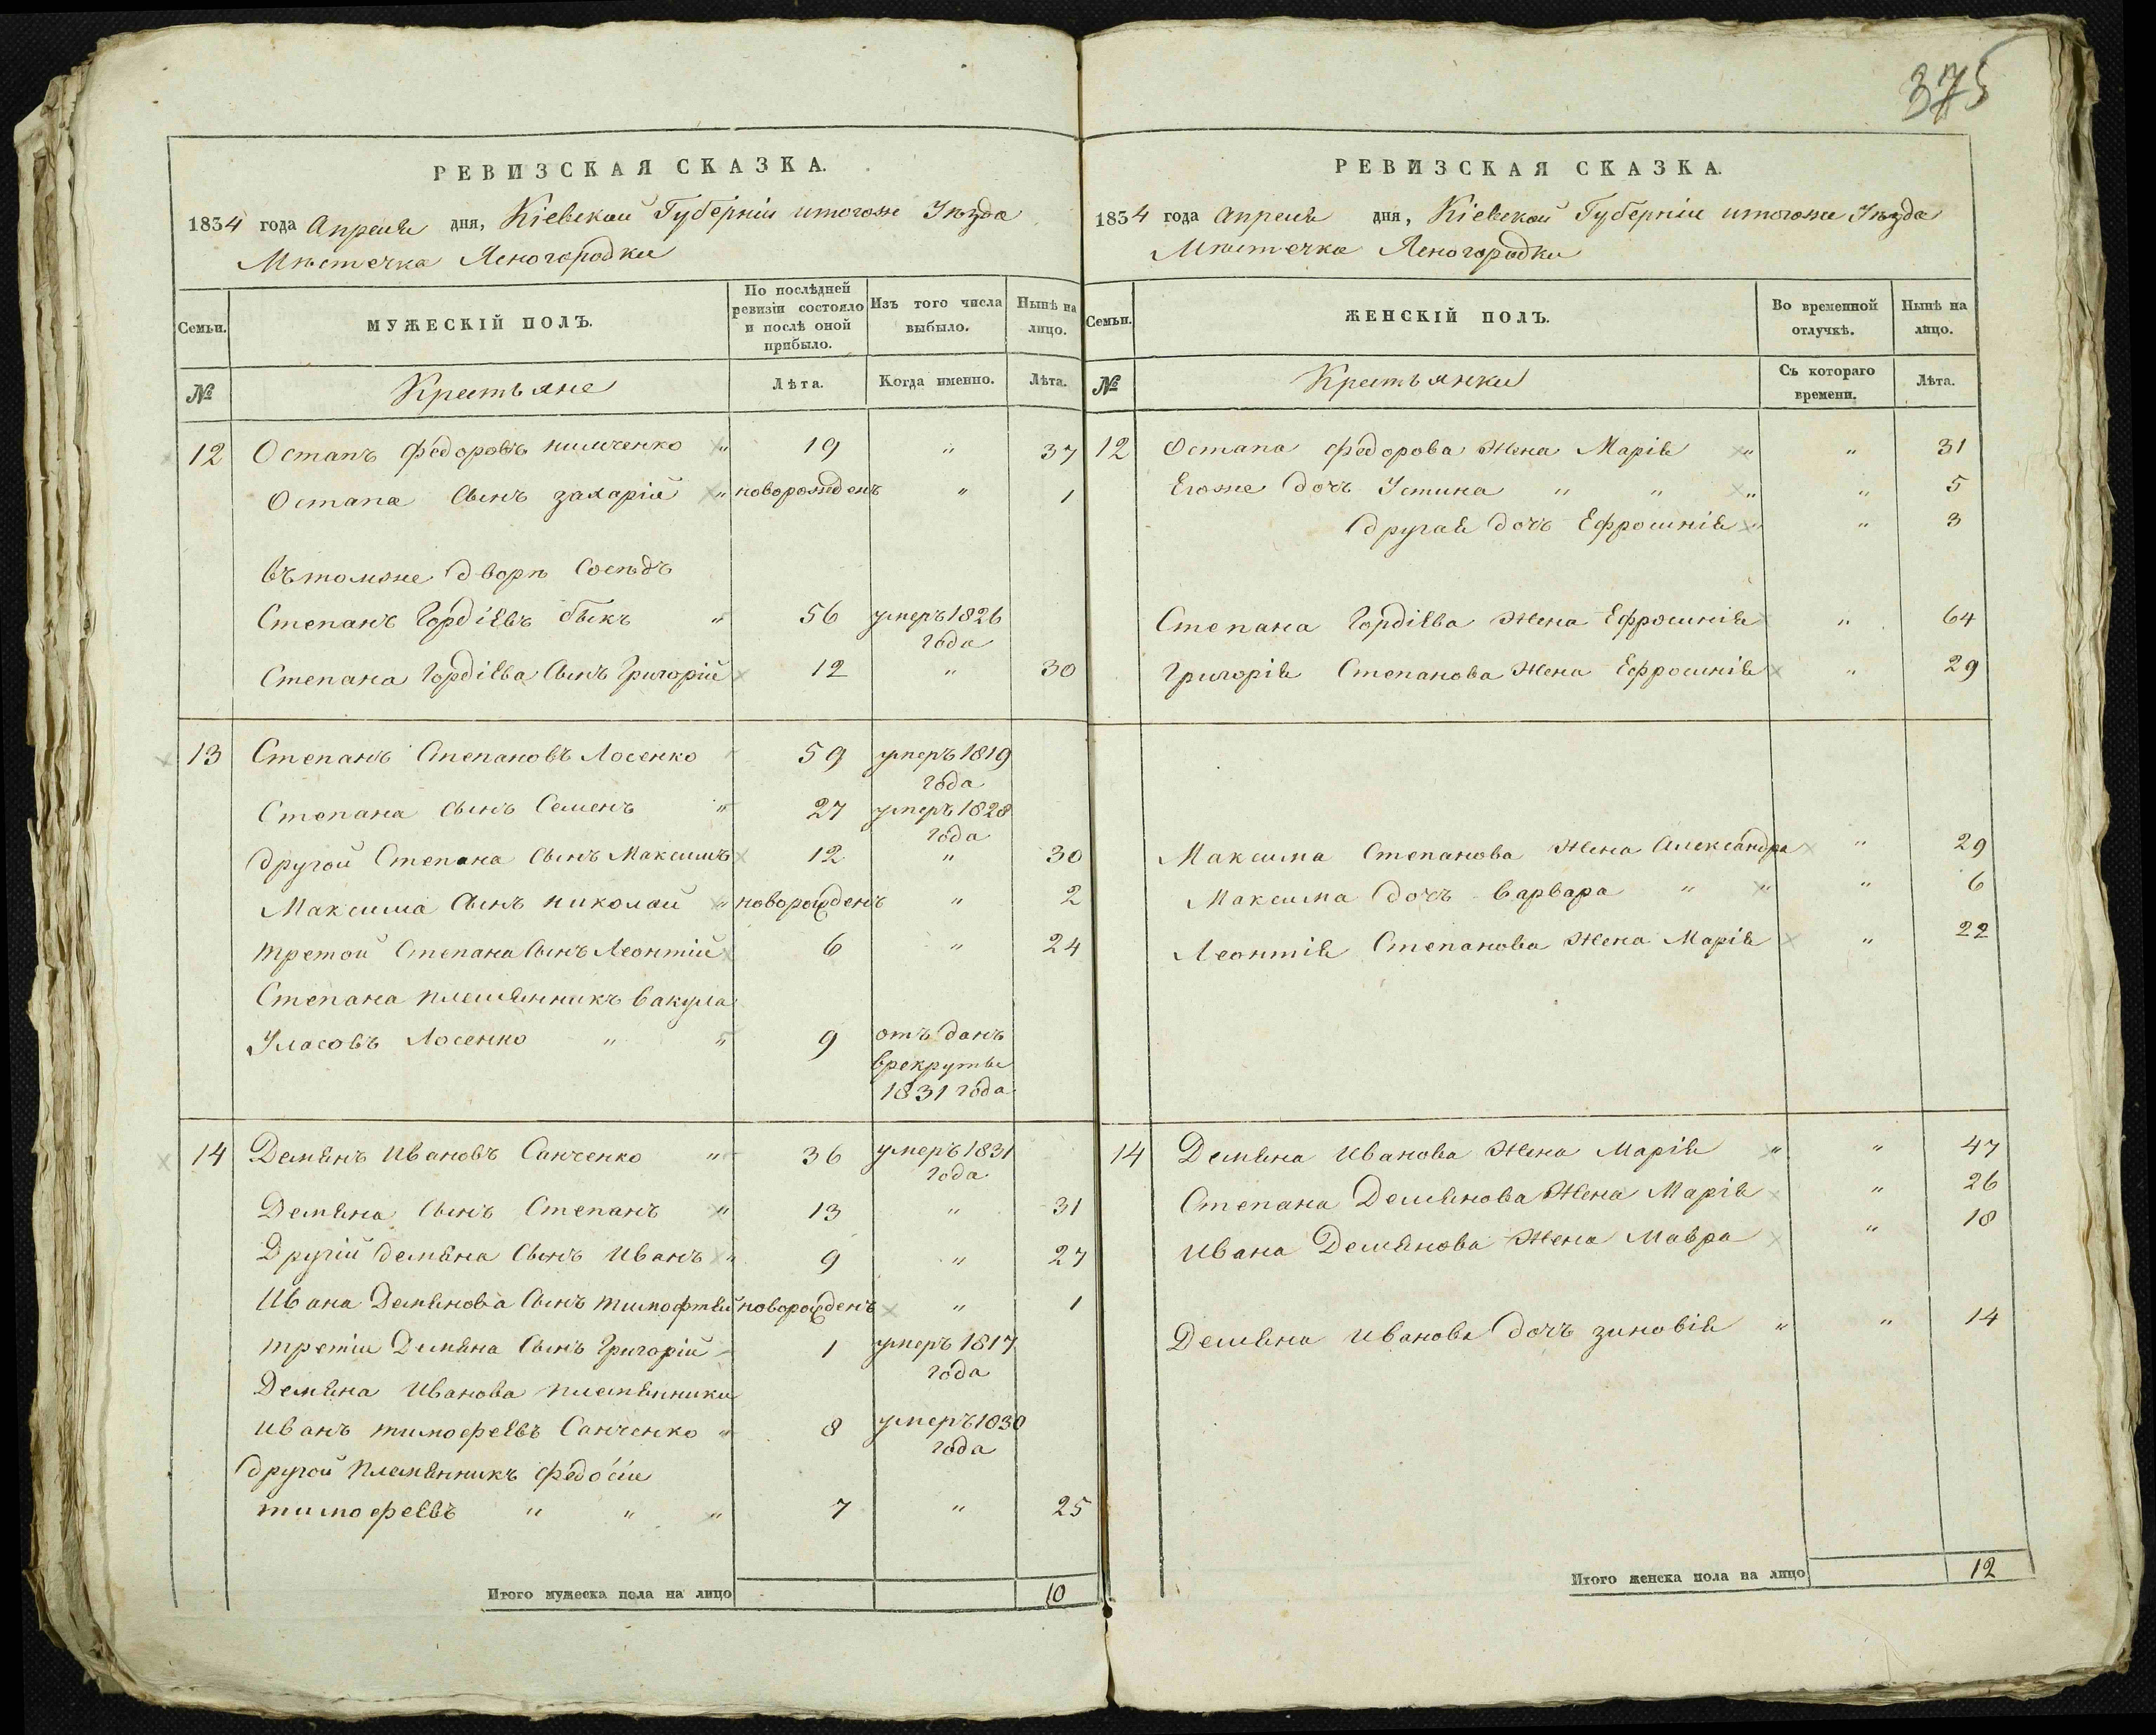 375
РЕВИЗСКАЯ СКАЗКА.
1834 года Апреля дня, Кіевской Губерніи итогоже Уѣзда
Мѣстечка Ясногородки
Семьи. МУЖЕСКІЙ ПОЛЪ. По послѣдней ревизіи состояло и послѣ оной прибыло. Изъ того числа выбыло. Нынѣ на лицо.
№ Крестьяне Лѣта. Когда именно. Лѣта.
12 Остапъ Федоровъ " 19 " 37
Остапа Сынъ Захарій " новорожденъ " 1
Вътомже дворѣ Сосѣдъ
Степанъ Гордіевъ Быкъ " 56 умеръ 1826 года
Степана Гордіева Сынъ Григорій 12 " 30
13 Степанъ Степановъ Лосенко 59 умеръ 1819 года
Степана Сынъ Семенъ " 27 умеръ 1828 года
другой Степана Сынъ Максимъ 12 " 30
Максима Сынъ Николай " новорожденъ " 2
третой Степана Сынъ Леонтій 6 " 24
Степана племянникъ Вакула
Уласовъ Лосенко " " 9 отъданъ врекруты 1831 года
14 Демянъ Ивановъ Санченко " 36 умеръ 1831 года
Демяна Сынъ Степанъ " 13 " 31
Другій Демяна Сынъ Иванъ " 9 " 27
Ивана Демянова Сынъ Тимофтей новорожденъ " 1
третіи Демяна Сынъ Григорій 1 умеръ 1817 года
Демяна Иванова племянники
Иванъ Тимофеевъ Санченко " 8 умеръ 1830 года
другой Племянникъ Федосіи
Тимофеевъ " " " 7 " 25
Итого мужеска пола на лицо 10
РЕВИЗСКАЯ СКАЗКА.
1834 года Апреля дня, Кіевской Губерніи итогоже Уѣзда
Мѣстечка Ясногородки
Семьи. ЖЕНСКІЙ ПОЛЪ. Во временной отлучкѣ. Нынѣ на лицо.
№ Крестьянки Съ котораго времени. Лѣта.
12 Остапа Федорова Жена Марія " " 31
Егоже дочь Устина " " " " 5
другая дочь Ефросинія " " 3
Степана Гордіева Жена Ефросинія " 64
Григорія Степанова Жена Ефросинія " 29
Максима Степанова Жена Александра " 29
Максима дочь Варвара " " " 6
Леонтія Степанова Жена Марія " 22
14 Демяна Иванова Жена Марія " " 47
Степана Демянова Жена Марія " 26
Ивана Демянова Жена Мавра " 18
Демяна Иванова дочь Зиновія " " 14
Итого женска пола на лицо 12